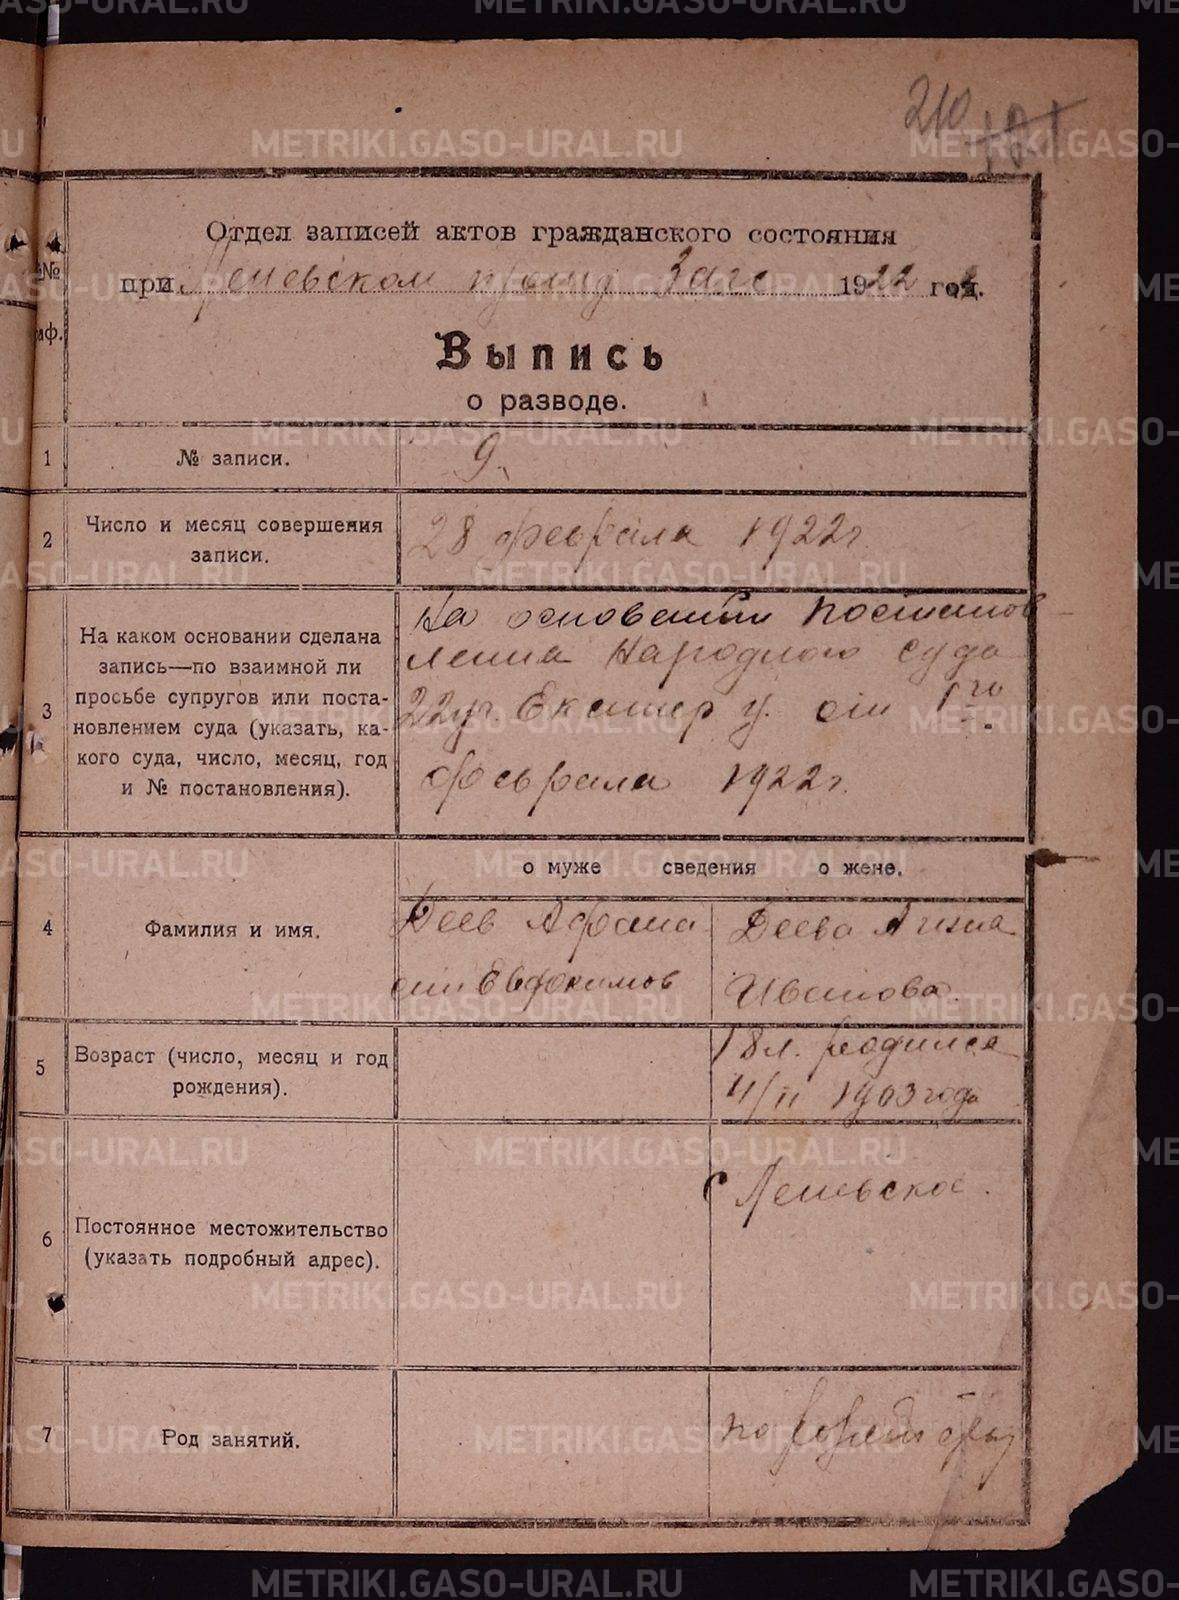 210
101
Отдел записей актов гражданского состояния
при волид Загс 1922 год.
Выпись
о разводе.
№
1 № записи. 9.
2 Число и месяц совершения
записи.
28 февраля 1922 г.
3 На каком основании сделана
запись—по взаимной ли
просьбе супругов или поста-
новлением суда (указать, ка-
кого суда, число, месяц, год
и № постановления).
На основании постанов
ления Народного суда
22 уч. Екатер у. от 1го
февраля 1922 г.
о муже сведения о жене.
4 Фамилия и имя.
Деев Афана
сий Евдокимов
Деева Анна
Иванова.
5 Возраст (число, месяц и год
рождения).
18 л. родился
4/II 1903 года
6 Постоянное местожительство
(указать подробный адрес).
7 Род занятий.
METRIKI.GASO-URAL.RU